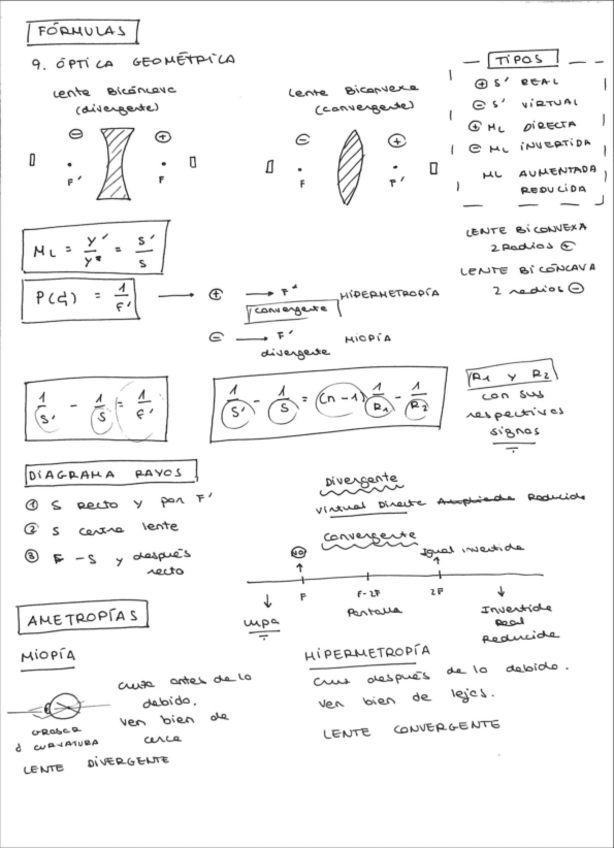 FÓRMULAS
9. ÓPTICA GEOMÉTRICA
Lente Bicóncava
(divergente)
⊖ ⊕
F' F
Lente Biconvexa
(convergente)
⊖ ⊕
F F'
TIPOS
⊕ S' REAL
⊖ S' VIRTUAL
⊕ ML DIRECTA
⊖ ML INVERTIDA
ML AUMENTADA
REDUCIDA
LENTE BICONVEXA
2 Radios ⊕
LENTE BICÓNCAVA
2 radios ⊖
ML = y'/y = s'/s
P(d) = 1/f' → ⊕ → F' HIPERMETROPÍA
convergente
⊖ → F' MIOPÍA
divergente
1/s' - 1/s = 1/f'
1/s' - 1/s = (n-1) 1/R1 - 1/R2
R1 Y R2
con sus
respectivos
signos
DIAGRAMA RAYOS
① S RECTO y por F'
② S centro lente
③ F - S y después
recto
Divergente
Virtual Directe Ampliada Reducida
Convergente
NO Igual invertida
F F-2F 2F
lupa Pantalla Invertida
Real
Reducida
AMETROPÍAS
MIOPÍA
cruza antes de lo
debido.
ven bien de
cerca
GROSOR
d CURVATURA
LENTE DIVERGENTE
HIPERMETROPÍA
cruz después de lo debido.
ven bien de lejos.
LENTE CONVERGENTE